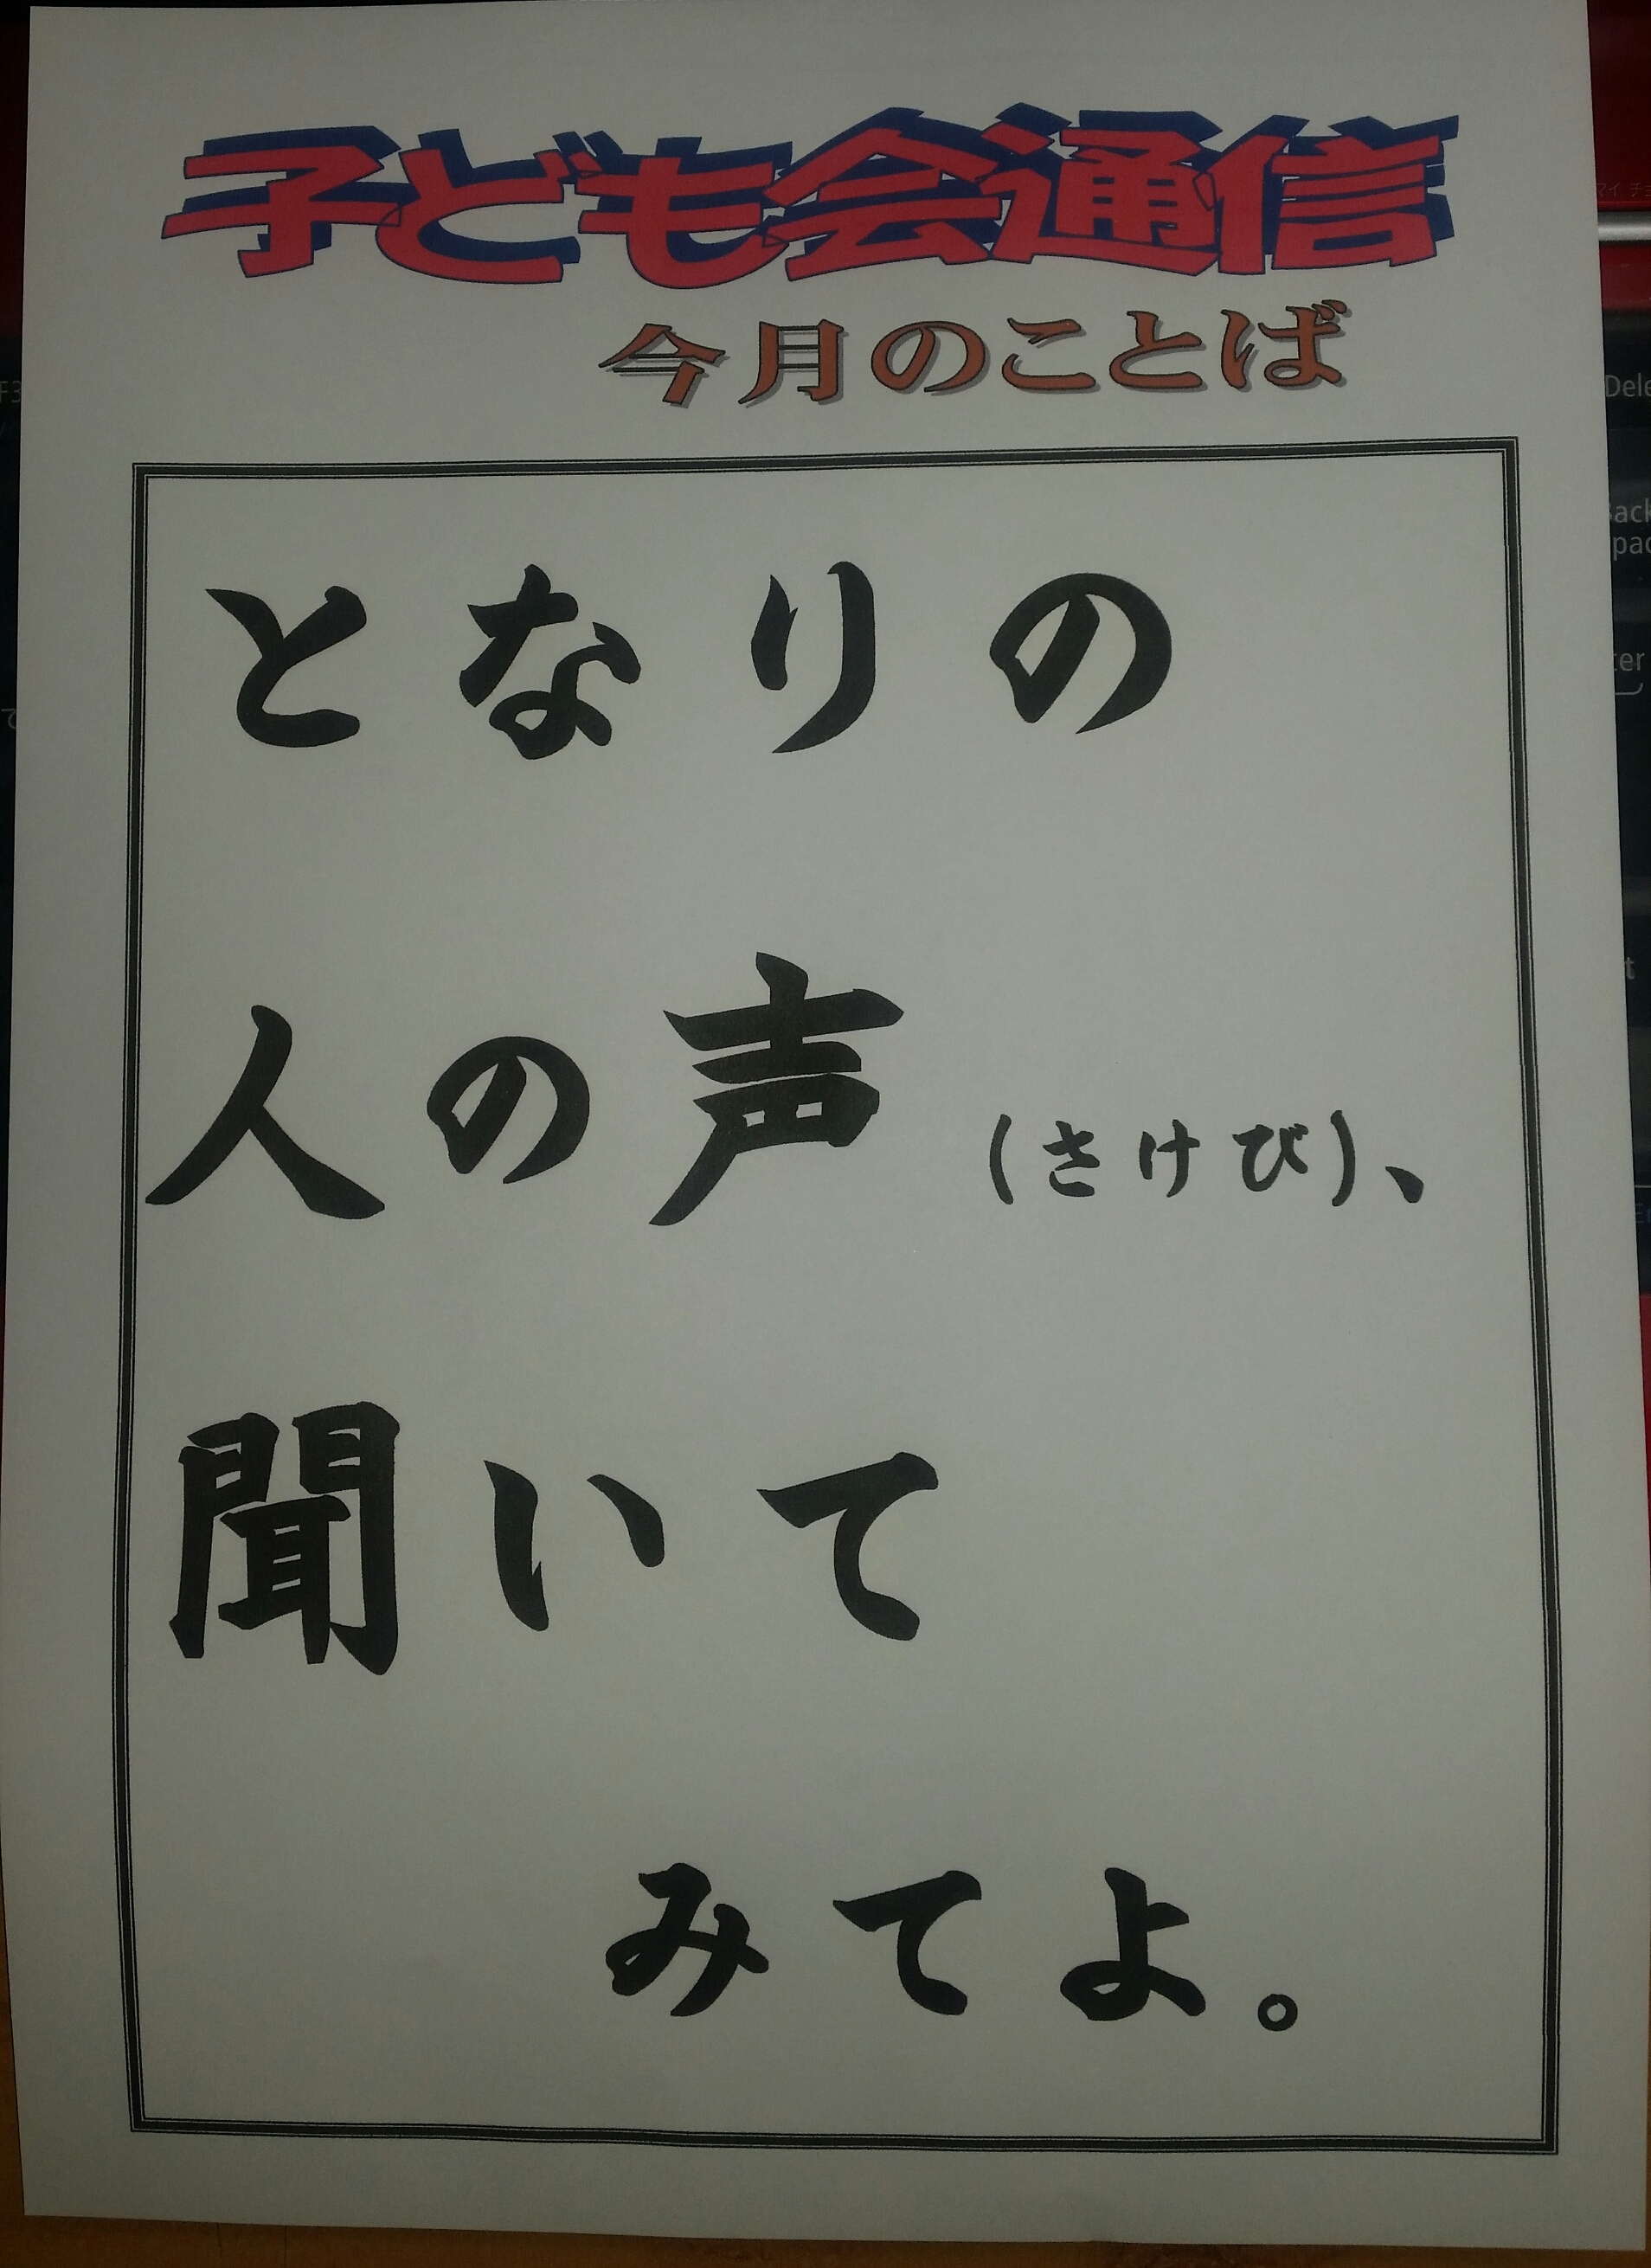 子ども会通信
今月のことば
となりの
人の声(さけび)、
聞いて
みてよ。